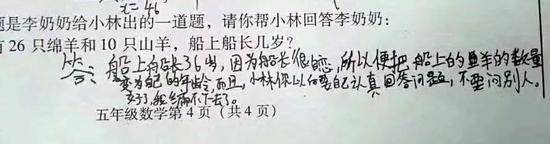 题是李奶奶给小林出的一道题，请你帮小林回答李奶奶：
有 26 只绵羊和 10 只山羊，船上船长几岁？
答：船上船长36岁，因为船长很恋，所以便把船上的羊的数量
变为自己的年龄，而且，小林你以后要自己认真回答问题，不要问别人。
好了，我编不下去了。
五年级数学第 4 页（共 4 页）